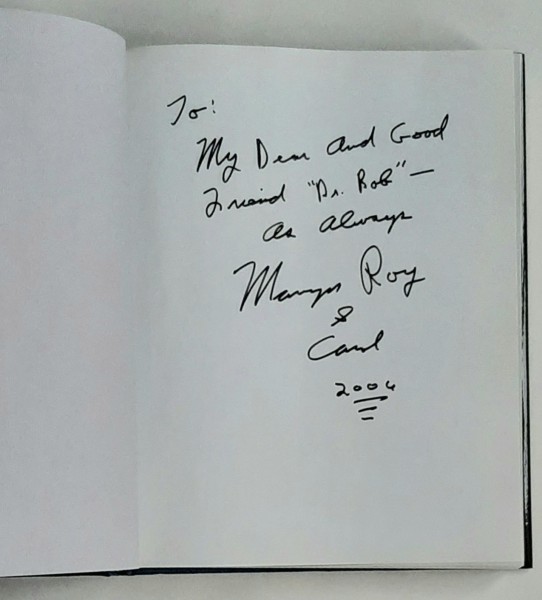 To:
My Dear and Good
Friend "Dr. Bob" —
As Always
Marvyn Roy
&
Carol
2006